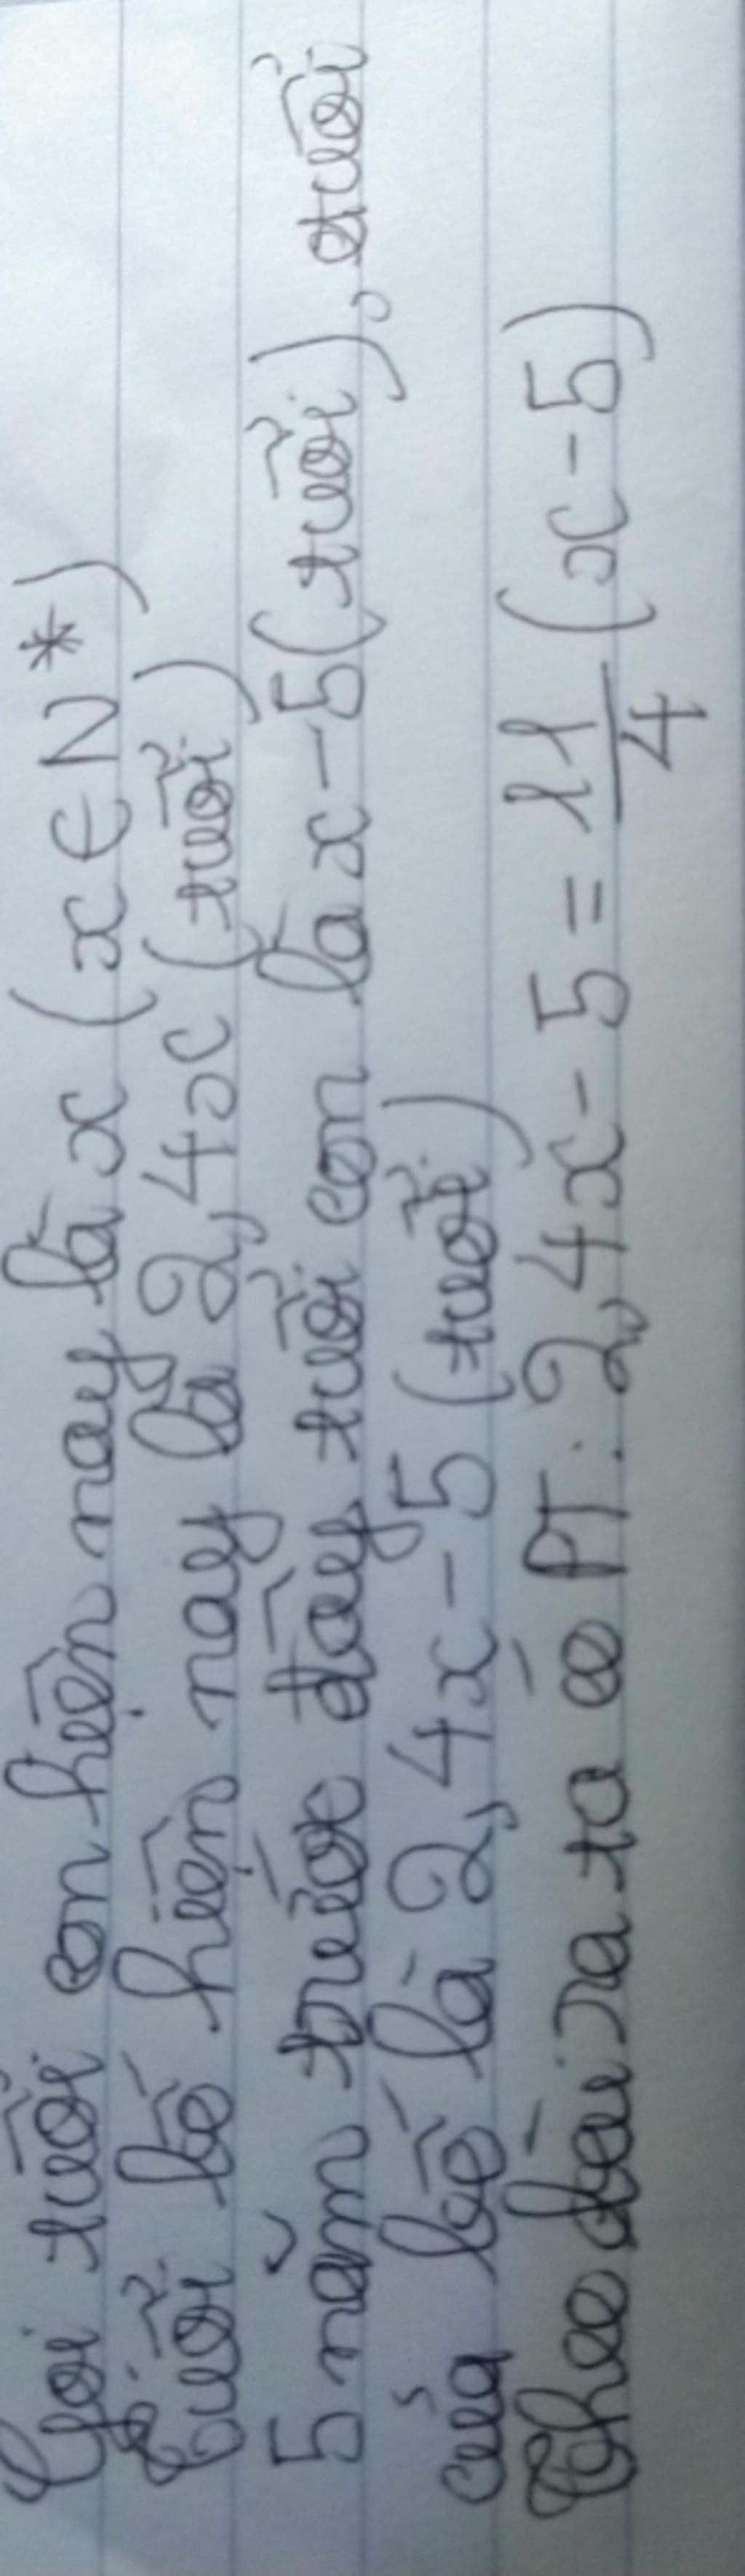 Gọi tuổi con hiện nay là x (x ∈ N*)
Tuổi bố hiện nay là 2,4x (tuổi)
5 năm trước đây tuổi con là x - 5 (tuổi), tuổi
của bố là 2,4x - 5 (tuổi)
Theo bài ra ta có PT: 2,4x - 5 = 11/4 (x - 5)